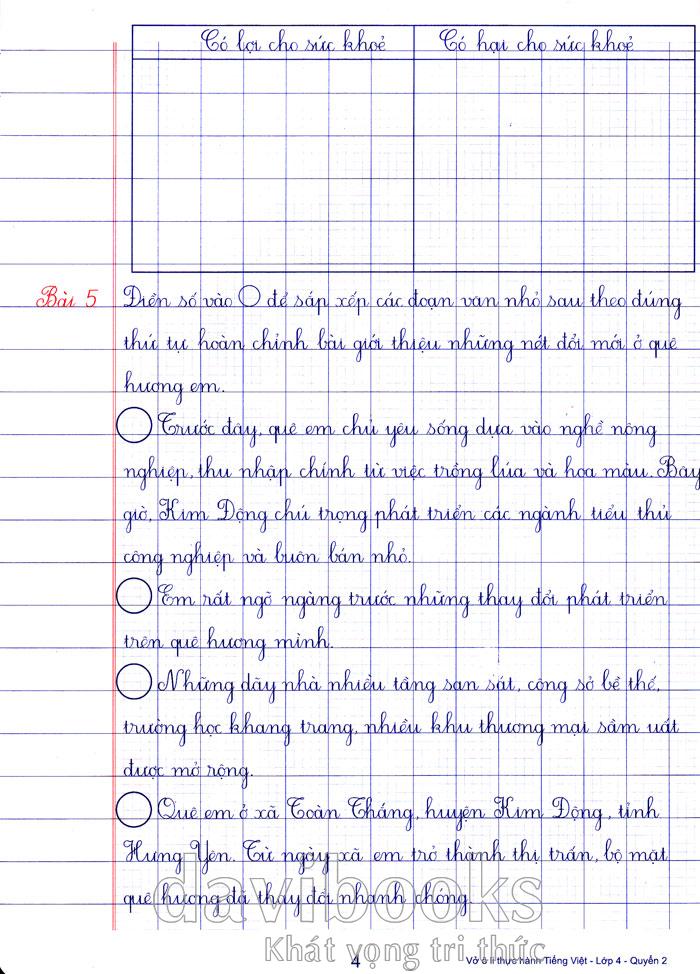 Có lợi cho sức khoẻ
Có hại cho sức khoẻ
Bài 5
Điền số vào ◯ để sắp xếp các đoạn văn nhỏ sau theo đúng
thứ tự hoàn chỉnh bài giới thiệu những nét đổi mới ở quê
hương em.
◯ Trước đây, quê em chủ yếu sống dựa vào nghề nông
nghiệp, thu nhập chính từ việc trồng lúa và hoa màu. Bây
giờ, Kim Động chú trọng phát triển các ngành tiểu thủ
công nghiệp và buôn bán nhỏ.
◯ Em rất ngỡ ngàng trước những thay đổi phát triển
trên quê hương mình.
◯ Những dãy nhà nhiều tầng san sát, công sở bề thế,
trường học khang trang, nhiều khu thương mại sầm uất
được mở rộng.
◯ Quê em ở xã Toàn Thắng, huyện Kim Động, tỉnh
Hưng Yên. Từ ngày xã em trở thành thị trấn, bộ mặt
quê hương đã thay đổi nhanh chóng.
davibooks
Khát vọng tri thức
4
Vở ô li thực hành Tiếng Việt - Lớp 4 - Quyển 2